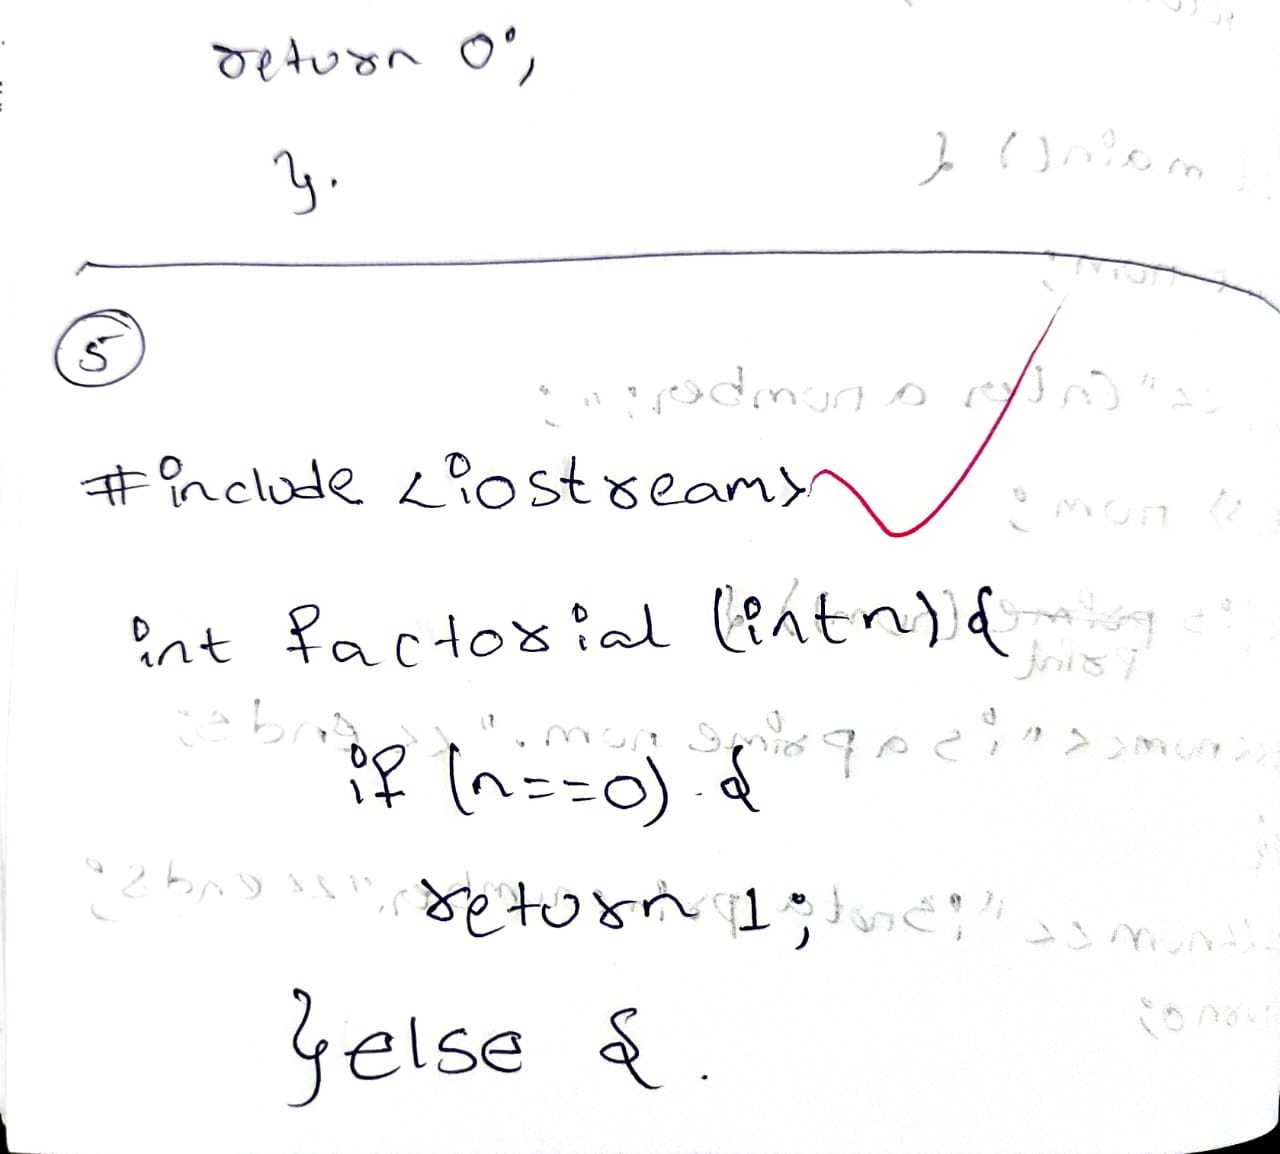 return 0;
}.
5
#include <iostream>
int factorial (int n) {
if (n==0) {
return 1;
} else {.